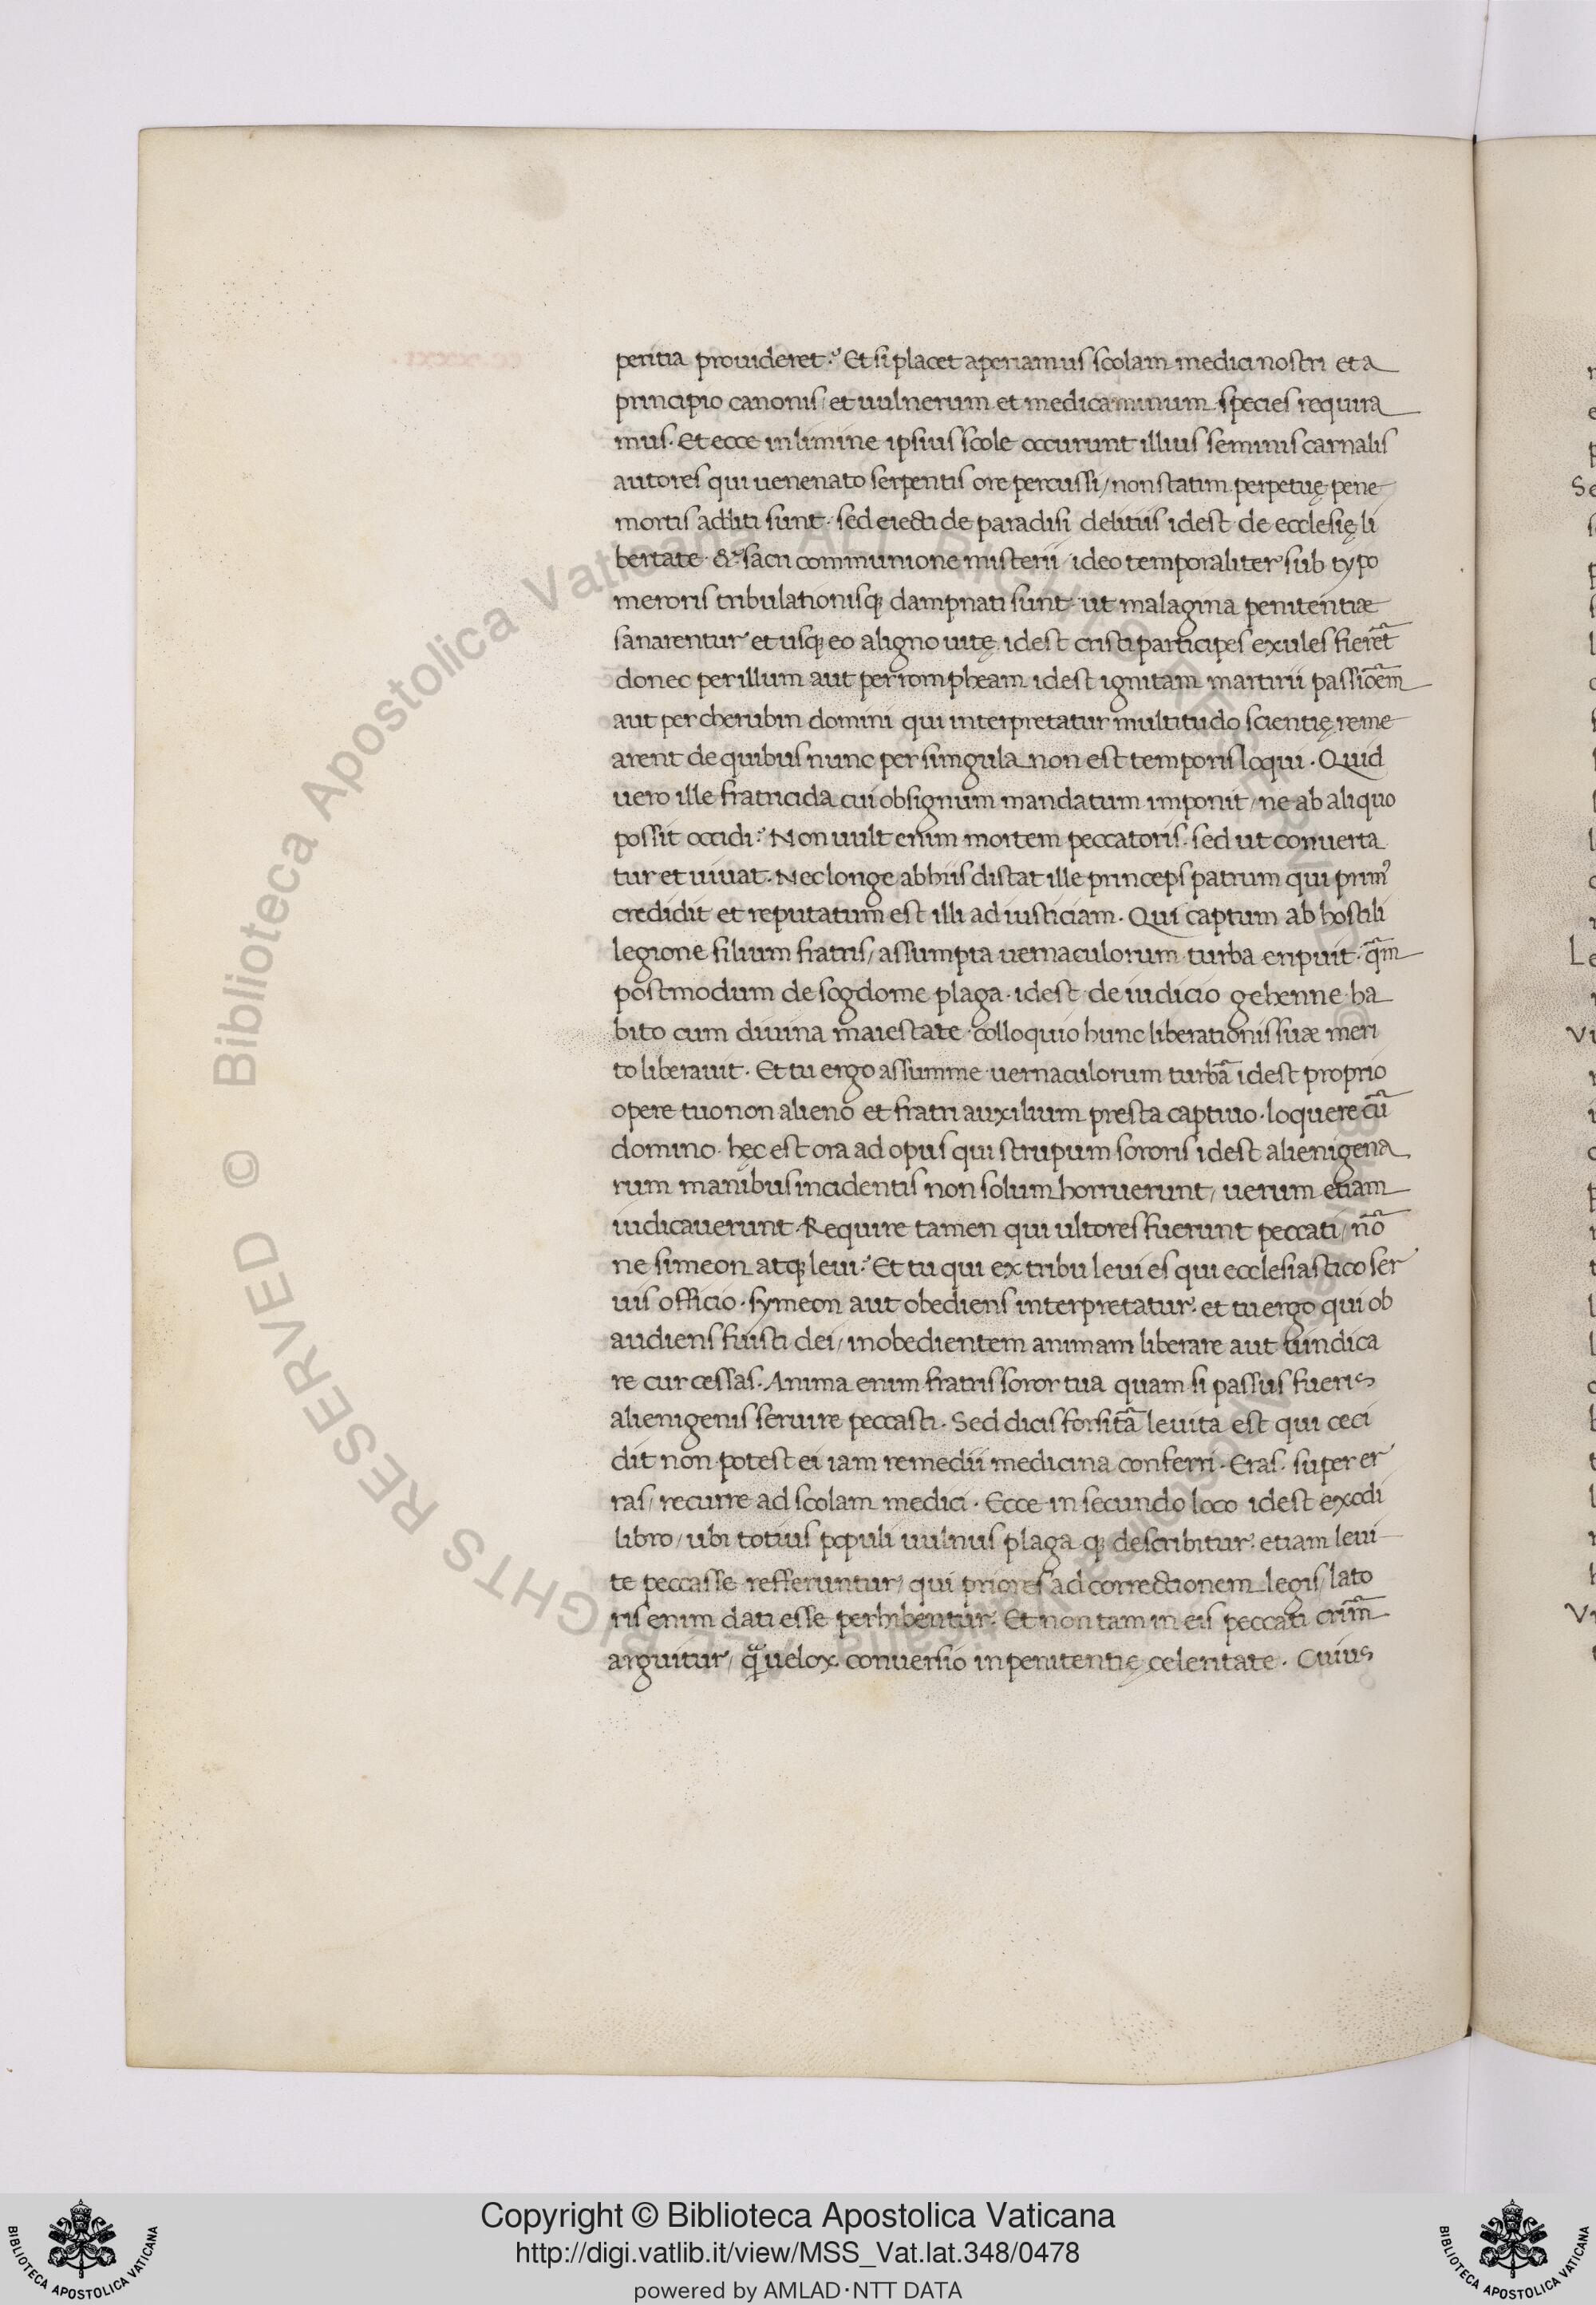 peritia prouideret? Et si placet aperiamus scolam medici nostri et a
principio canonis/ et uulnerum et medicaminum species requira
mus. Et ecce in limine ipsius scole occurunt illius seminis carnalis
autores qui uenenato serpentis ore percussi/ non statim perpetuę pene
mortis additi sunt. sed eiecti de paradisi delitiis idest de ecclesię li
bertate. & sacri communione misterii/ ideo temporaliter sub typo
meroris tribulationisq; dampnati sunt. ut malagma penitentiæ
sanarentur et usq; eo aligno uitę idest cristi participes exules fierēt
donec per illum aut per rompheam idest ignitam martirii passiōem
aut per cherubin domini qui interpretatur multitudo scientię reme
arent de quibus nunc per singula non est temporis loqui. Quid
uero ille fratricida cui ob signum mandatum imponit/ ne ab aliquo
possit occidi? Non uult enim mortem peccatoris. sed ut conuerta
tur et uiuat. Nec longe ab hiis distat ille princeps patrum qui primꝰ
credidit et reputatum est illi ad iusticiam. Qui captum ab hostili
legione filium fratris/ assumpta uernaculorum turba eripuit. q̄m
postmodum de sogdome plaga. idest de iudicio gehenne ha
bito cum diuina maiestate colloquio hunc liberationis suæ meri
to liberauit. Et tu ergo assumme uernaculorum turbā idest proprio
opere tuo non alieno et fratri auxilium presta captiuo. loquere cū
domino. hęc est ora ad opus qui strupum sororis idest alienigena
rum manibus incidentis non solum horruerunt/ uerum etiam
iudicauerunt. Require tamen qui ultores fuerunt peccati/ nō
ne simeon atq; leui? Et tu qui ex tribu leui es qui ecclesiastico ser
uis officio. symeon aut obediens interpretatur. et tu ergo qui ob
audiens fuisti dei/ inobedientem animam liberare aut uindica
re cur cessas. Anima enim fratris soror tua quam si passus fueris
alienigenis seruire peccasti. Sed dicis forsitā leuita est qui ceci
dit non potest ei iam remedii medicina conferri. Eras. super er
ras/ recurre ad scolam medici. Ecce in secundo loco idest exodi
libro/ ubi totius populi uulnus plaga q; describitur. etiam leui
te peccasse refferuntur/ qui priores ad correctionem legis lato
ris enim dati esse perhibentur. Et non tam in eis peccati crim̄
arguitur/ quā uelox conuersio in penitentię celeritate. Cuius
Copyright © Biblioteca Apostolica Vaticana
http://digi.vatlib.it/view/MSS_Vat.lat.348/0478
powered by AMLAD·NTT DATA